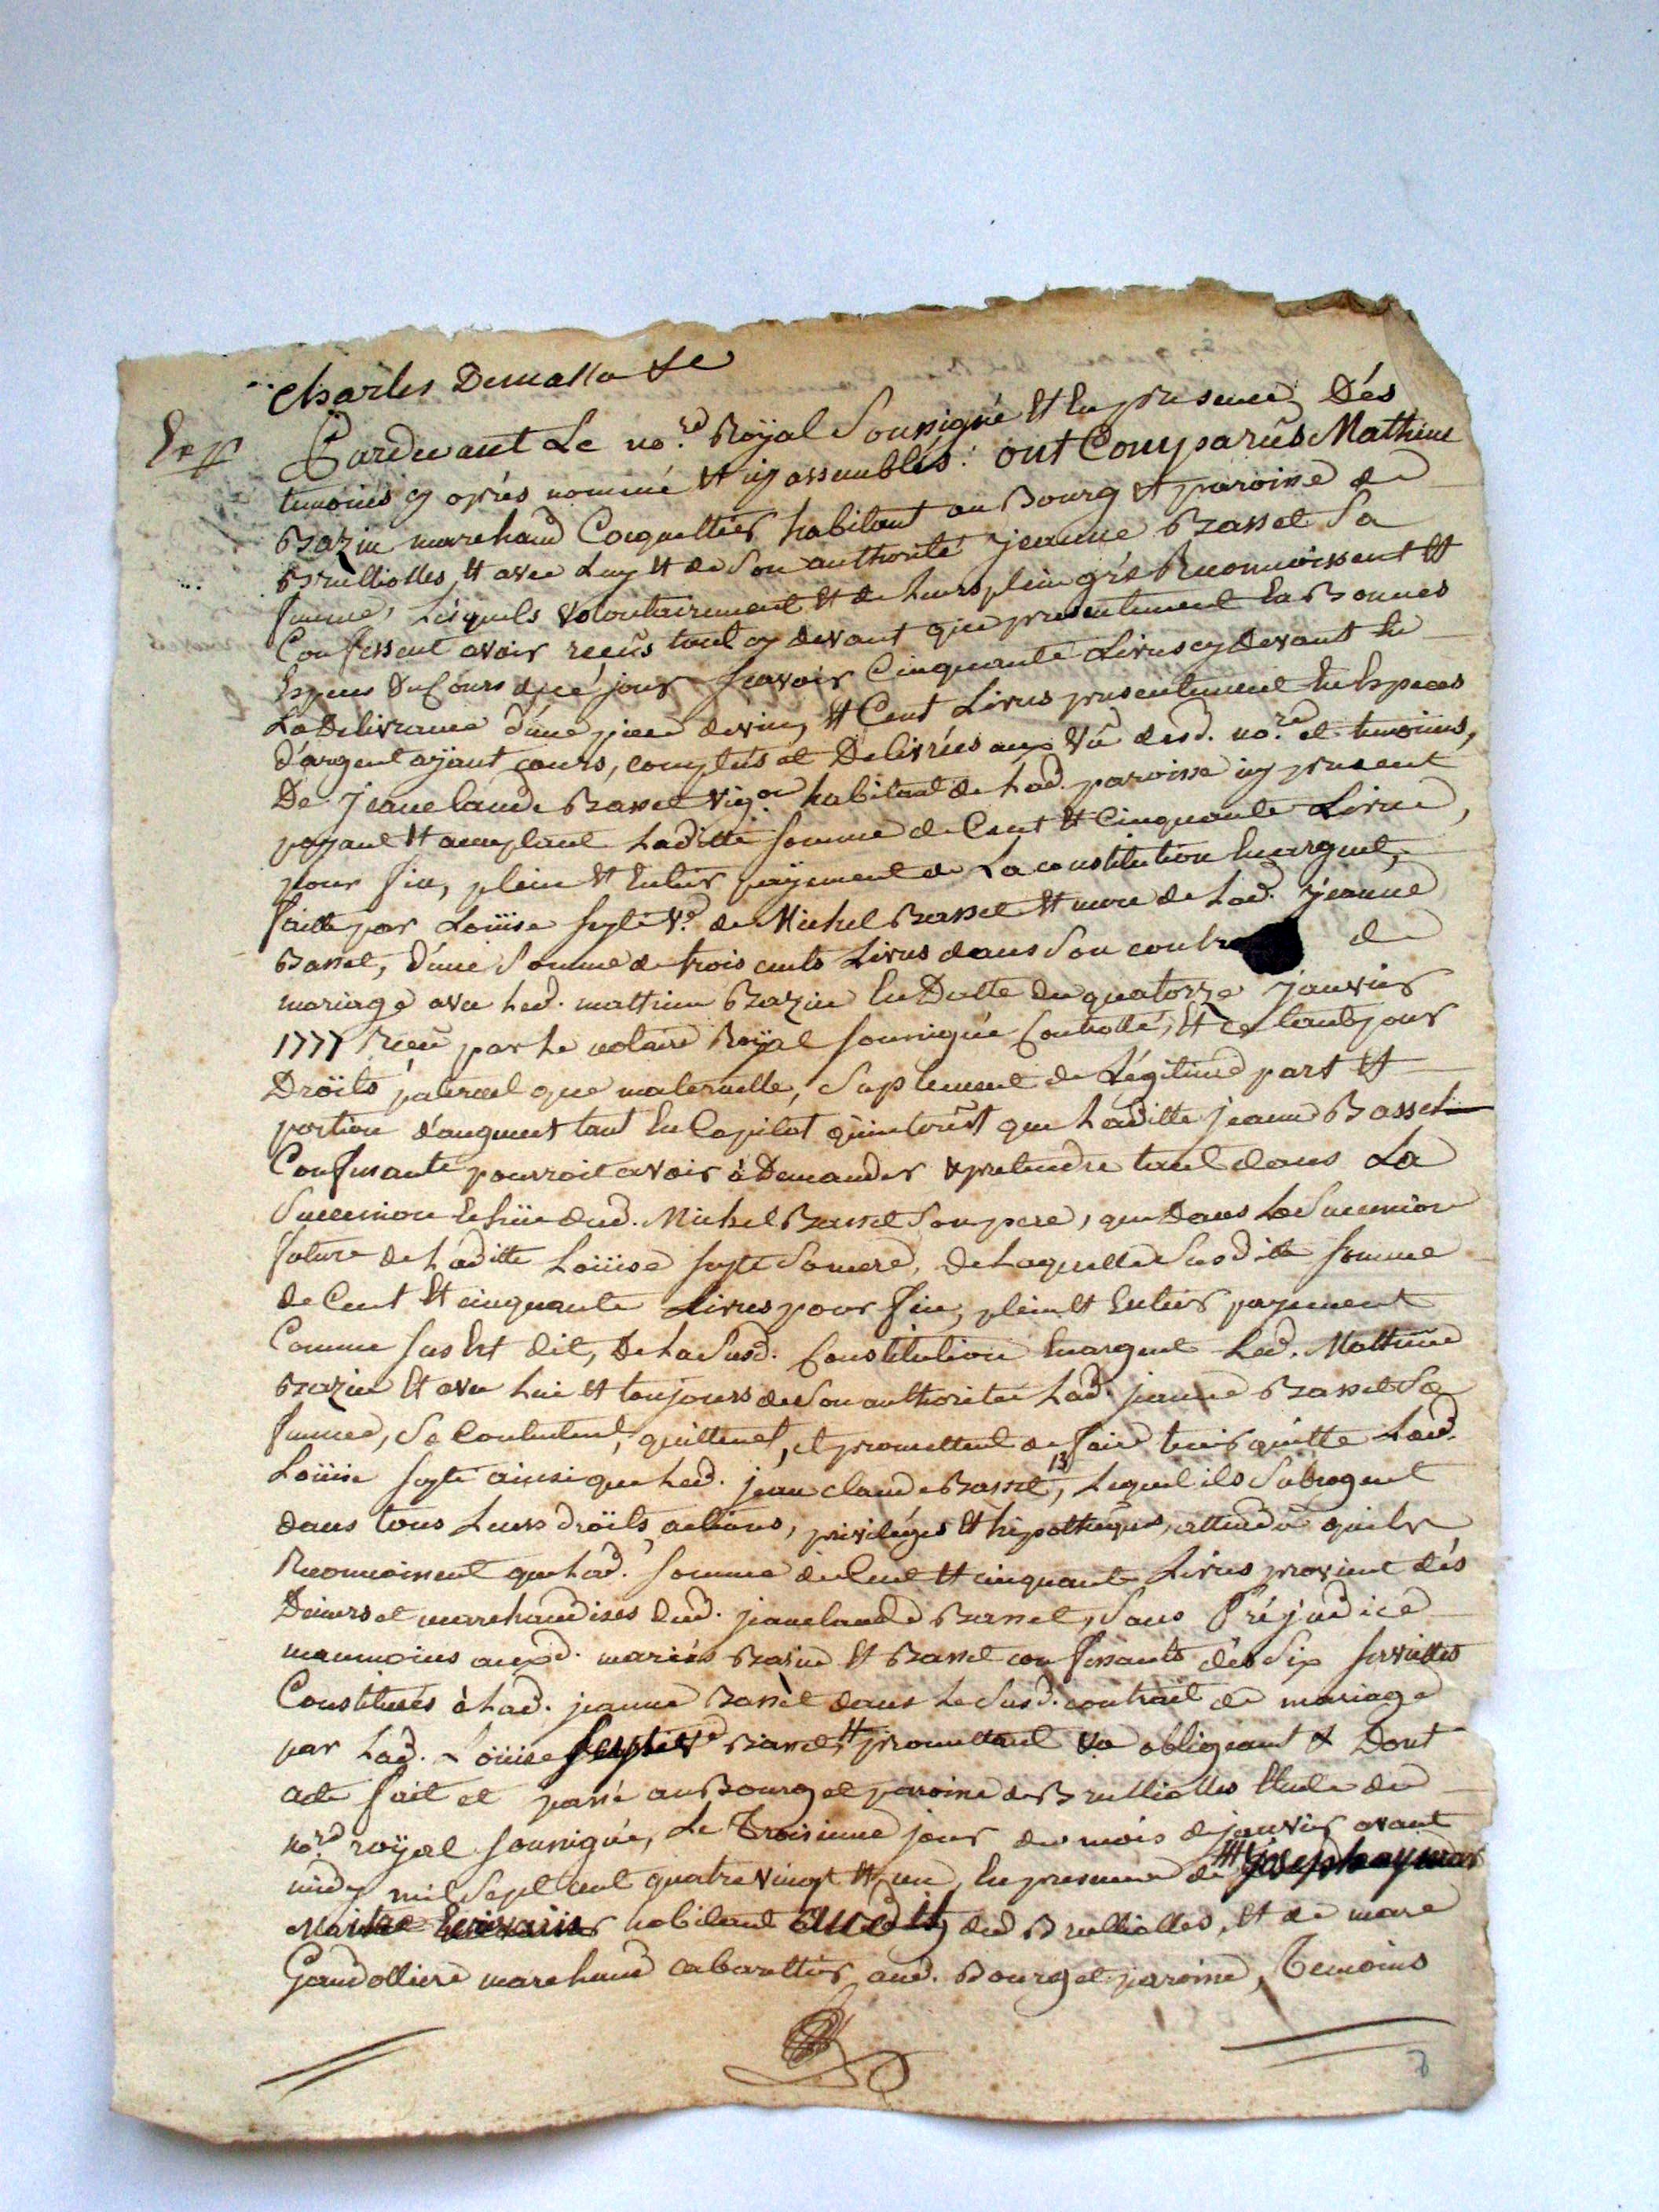 Charles Demasso
Exp
Pardevant Le no.re Roÿal Soussigné Et En presence Dés
temoins cy aprés nommé Et icy assemblés: ont Comparûs Mathieu
Bazin marchand Coquettier habitant au Bourg et paroisse de
Brulliolles, Et avec Luy Et de Son authorité jeanne Basset Sa
femme, Lésquels volontairement Et de Leurs plein gré Reconnoissent Et
Confessent avoir reçûs tant cy devant que presentement En Bonnes
Especes Du Cours de cé jour sçavoir Cinquante Livres cy Devant En
La Delivrance d'une piece de vin, Et Cent Livres presentement En Especes
d'argent aÿant cours, comptés et Delivrées aux Vû desd. no.re et temoins,
De jeanclaude Basset vig.on habitant de Lad. paroisse icy present
payant Et acceptant Laditte somme de Cent Et Cinquante Livres,
pour fin, plein Et Entier payement de La constitution En argent,
faitte par Loüise v.e de Michel Basset Et mere de Lad. jeanne
Basset, d'une Somme de trois cents Livres dans Son contrat de
mariage avec Led. mathieu Bazin En Datte du quatorze janvier
1777 Reçû par Le notaire Roÿal soussigné Controllé, Et ce tant pour
Droits paternel que maternelle, Suplement de Légitime part Et
portion d'augment tant En Capital qu'interêst que Laditte jeanne Basset
Confessante pourroit avoir à Demander & pretendre tant dans La
Succession Echüe dud. Michel Basset Son pere, que Dans La Succession
future de Laditte Loüise Sa mere, de Laquelle Susditte somme
de Cent Et cinquante Livres pour fin, plein Et Entier payement
Comme sus Est dit, De La Susd. Constitution En argent Led. Mathieu
Bazin Et avec Lui Et toujours de Son authorité Lad. jeanne Basset Sa
femme, Se Contentent, quittent, et promettent de faire tenir quitte Lad.
Loüise ainsi que Led. jean claude Basset, Lequel ils Subrogent
dans tous Leurs droits, actions, priviléges Et hipotheques, attendû qu'ils
Reconnoissent que Lad. somme de Cent Et cinquante Livres provient dés
Deniers et marchandises dud. jeanclaude Basset, Sans Préjudice
neanmoins auxd. mariés Bazin Et Basset confessants dés Six serviettes
Constitués à Lad. jeanne Bassèt dans Le Susd. contrait de mariage
par Lad. Loüise v.e Basset, Et promettant &a obligeant & Dont
acte fait et passé au Bourg et paroisse de Brulliolles Etude du
no.re roÿal soussigné, Le Troisieme jour du mois de janvier avant
midy mil Sept cent quatre vingt Et un, En presence de joseph
Maitre Ecrivain habitant dud Brulliolles, Et de marc
Gaudolliere marchand cabarettier aud. Bourg et paroisse, Temoins